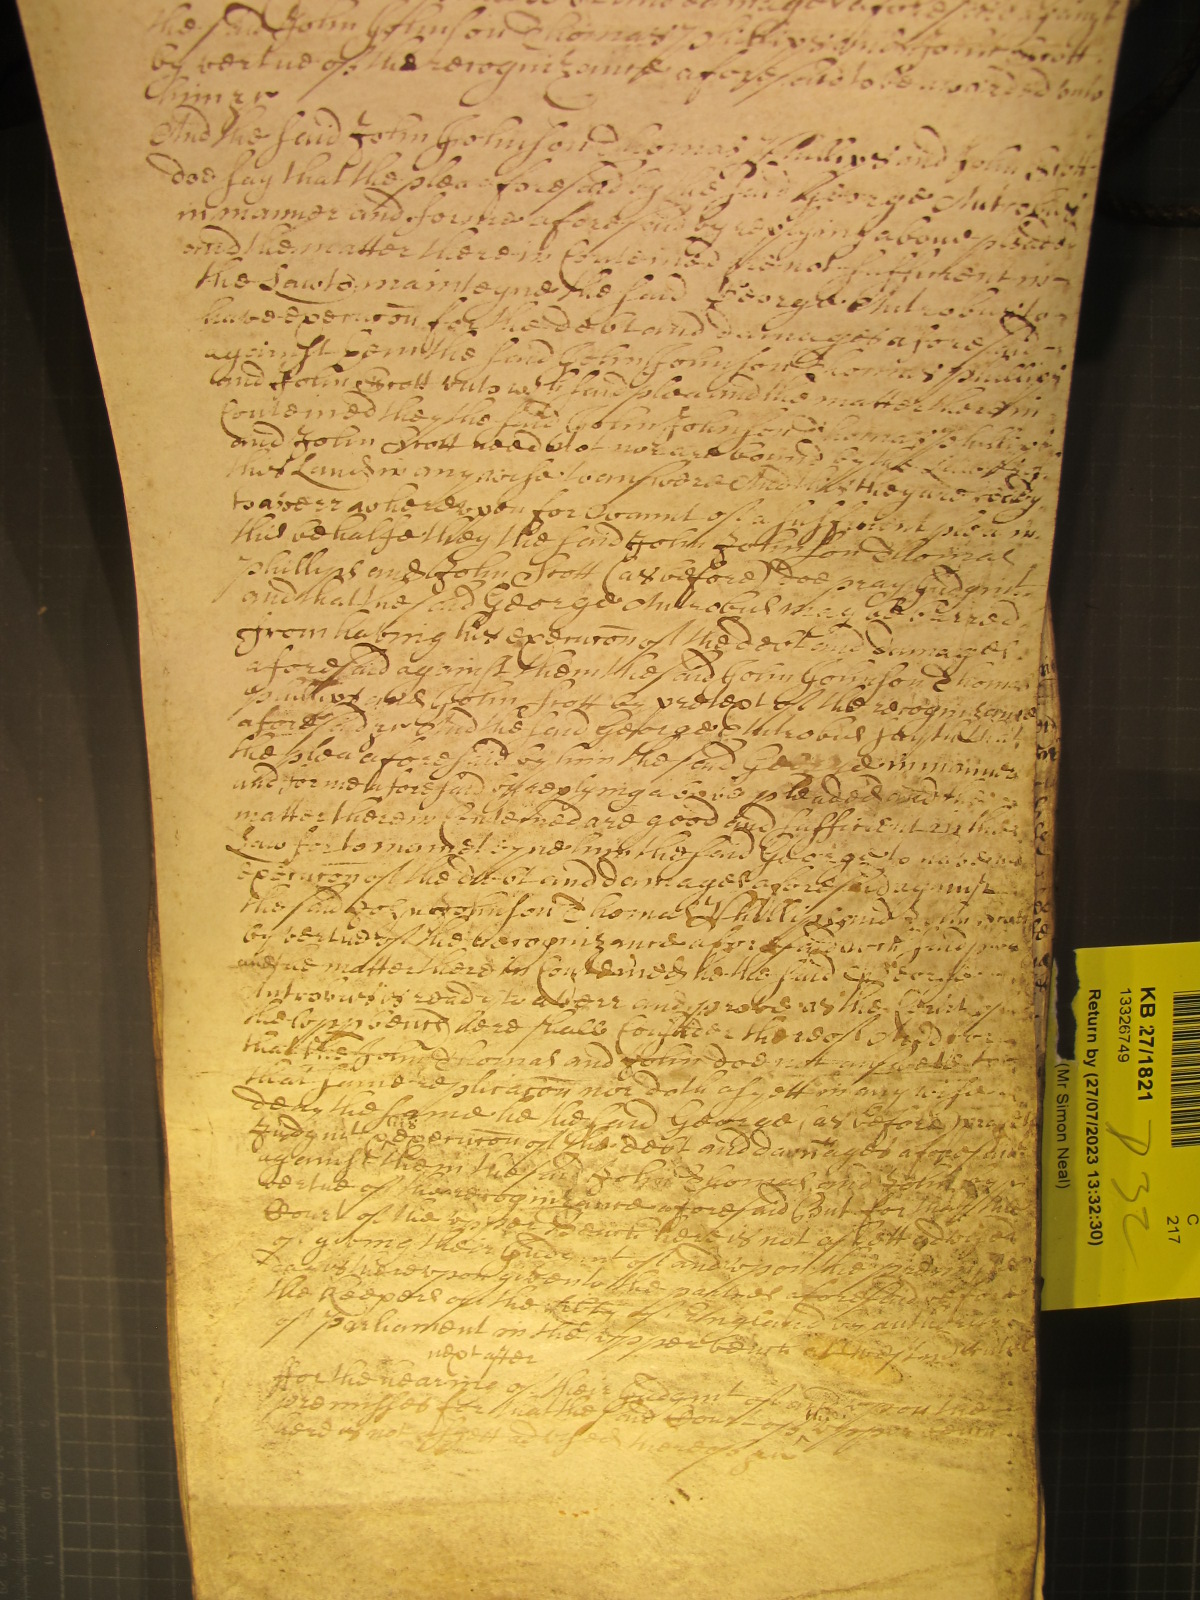 the said John Johnson Thomas Phillips and John Scott
by vertue of the recognizance aforesaid to be awarded unto
him &c
And the said John Johnson Thomas Phillips and John Scott
doe say that the plea aforesaid by the said George Antrobus
in manner and forme aforesaid by replying above pleaded
and the matter therein Conteined are not sufficient in
the Law to mainteyne the said George Antrobus to
have execucon for the debt and damages aforesaid
against them the said John Johnson Thomas Phillips
and John Scott unto wch said plea and the matter therein
Conteined they the said John Johnson Thomas Phillips
and John Scott need not nor are bound by the Law of
this Land in any wise to answere And this they are ready
to averr whereupon for want of a sufficient plea in
this behalfe they the said John Johnson Thomas
Phillips and John Scott (as before) doe pray Judgmt
and that the said George Antrobus may be barred
from having his execucon of the debt and damages
aforesaid against them the said John Johnson Thomas
Phillips and John Scott by pretext of the recognizance
aforesaid &c And the said George Antrobus sayth that
the plea aforesaid by him the said George in manner
and forme aforesaid by replying above pleaded and the
matter therein Conteined are good and sufficient in the
Law for to mainteyne him the said George to have
execucon of the debt and damages aforesaid against
the said John Johnson Thomas Phillips and John Scott
by vertue of the recognizance aforesaid wch said plea
and the matter therein Conteined he the said George
Antrobus is ready to averr and prove as the Court of
the upper bench here shall Consider thereof And for
that the John Thomas and John doe not answere to
that same replicacon nor doth as yett in any wise
deny the same he the said George (as before) prayes
Judgmt & his execucon of the debt and damages aforesaid
against them the said John Thomas and John by
vertue of the recognizance aforesaid But for that the
Court of the upper Bench here is not as yett advised
of giving their Judgmt of and upon the premisses
day is thereupon given to the parties aforesaid before
the Keepers of the liberty of England by authority
of Parliament in the upper bench at Westminster
next after
for the hearing of their Judgmt of and upon the
premisses for that the said Court of the upper bench
here is not as yett advised thereof &c
KB 27/1821
13326749
Return by (27/07/2023 13:32:30)
(Mr Simon Neal)
C
217